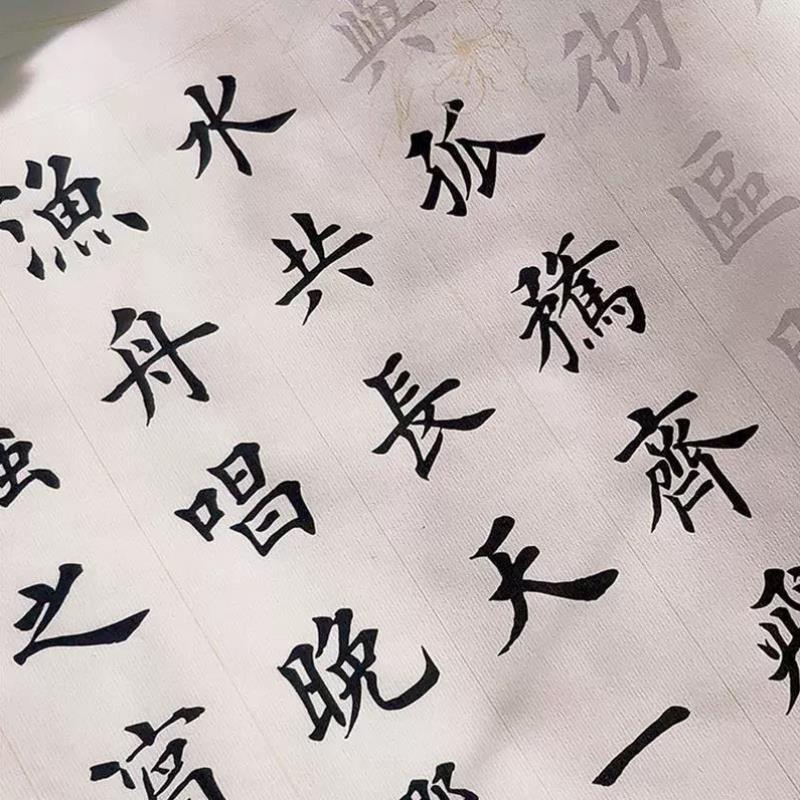 彻區
與孤鶩齊飛
水共長天一
漁舟唱晚
之